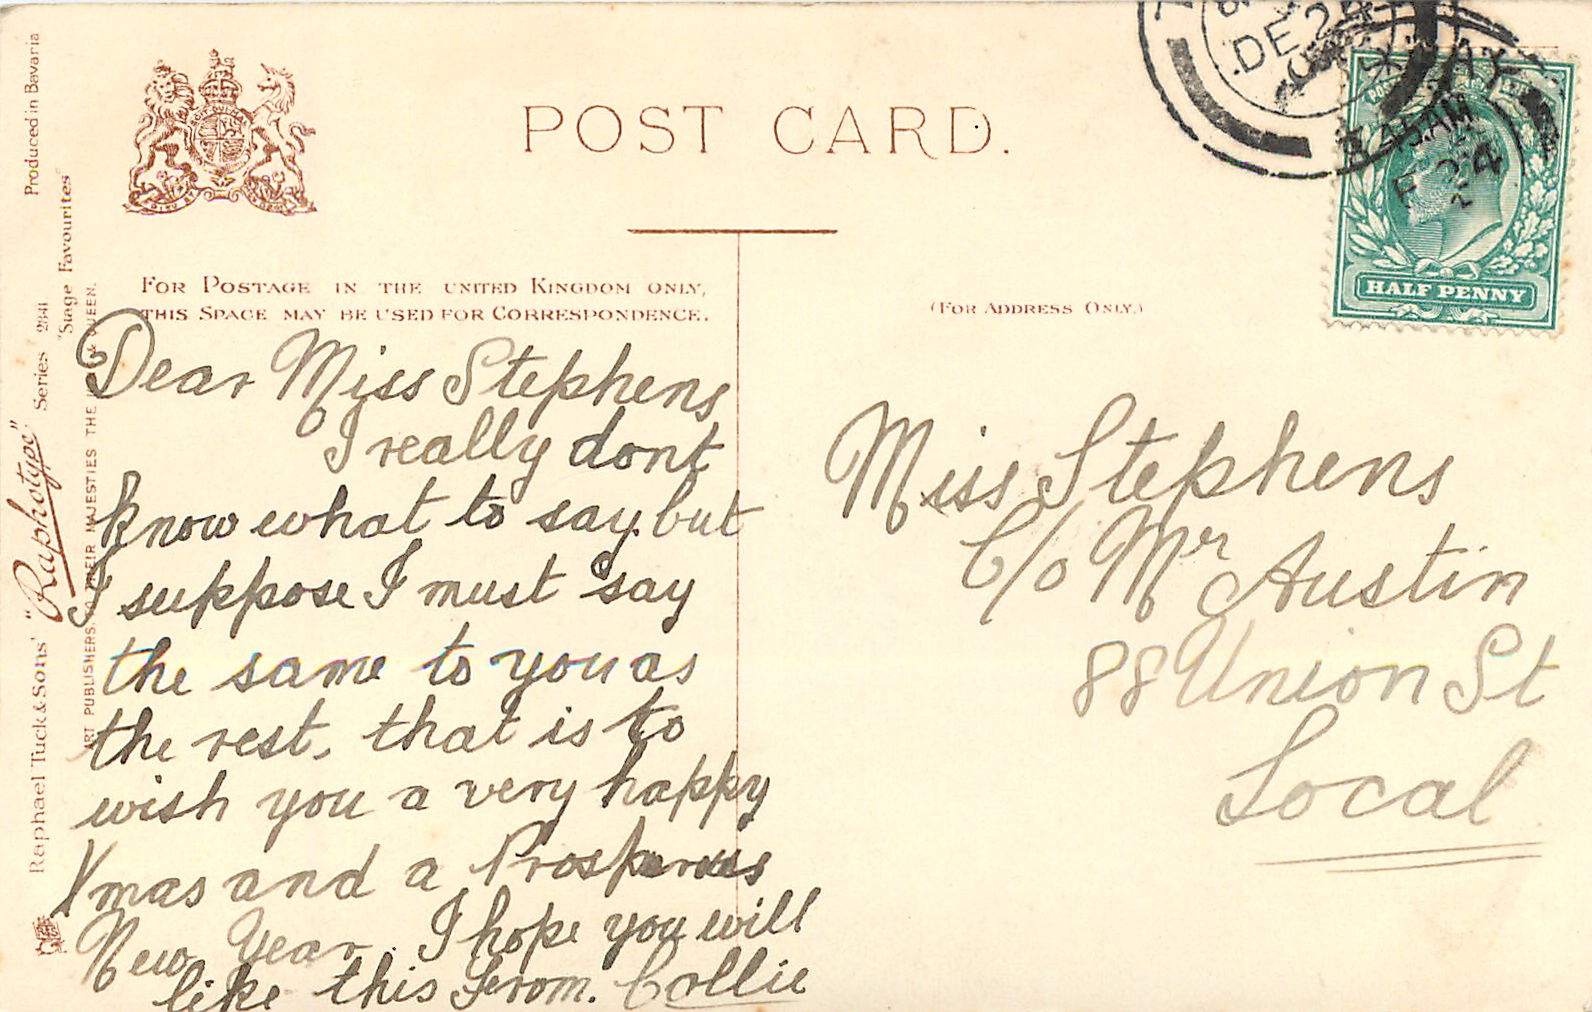 POST CARD.
FOR POSTAGE IN THE UNITED KINGDOM ONLY,
THIS SPACE MAY BE USED FOR CORRESPONDENCE.
(FOR ADDRESS ONLY.)
Dear Miss Stephens
I really dont
know what to say but
I suppose I must say
the same to you as
the rest, that is to
wish you a very happy
Xmas and a Prosperous
New Year. I hope you will
like this From. Collie
Miss Stephens
C/o Mr Austin
88 Union St
Local
HALF PENNY
DE 24
45 AM
24
Raphael Tuck & Sons' "Raphotype" Series 2341
"Stage Favourites"
Produced in Bavaria
ART PUBLISHERS TO THEIR MAJESTIES THE KING & QUEEN.